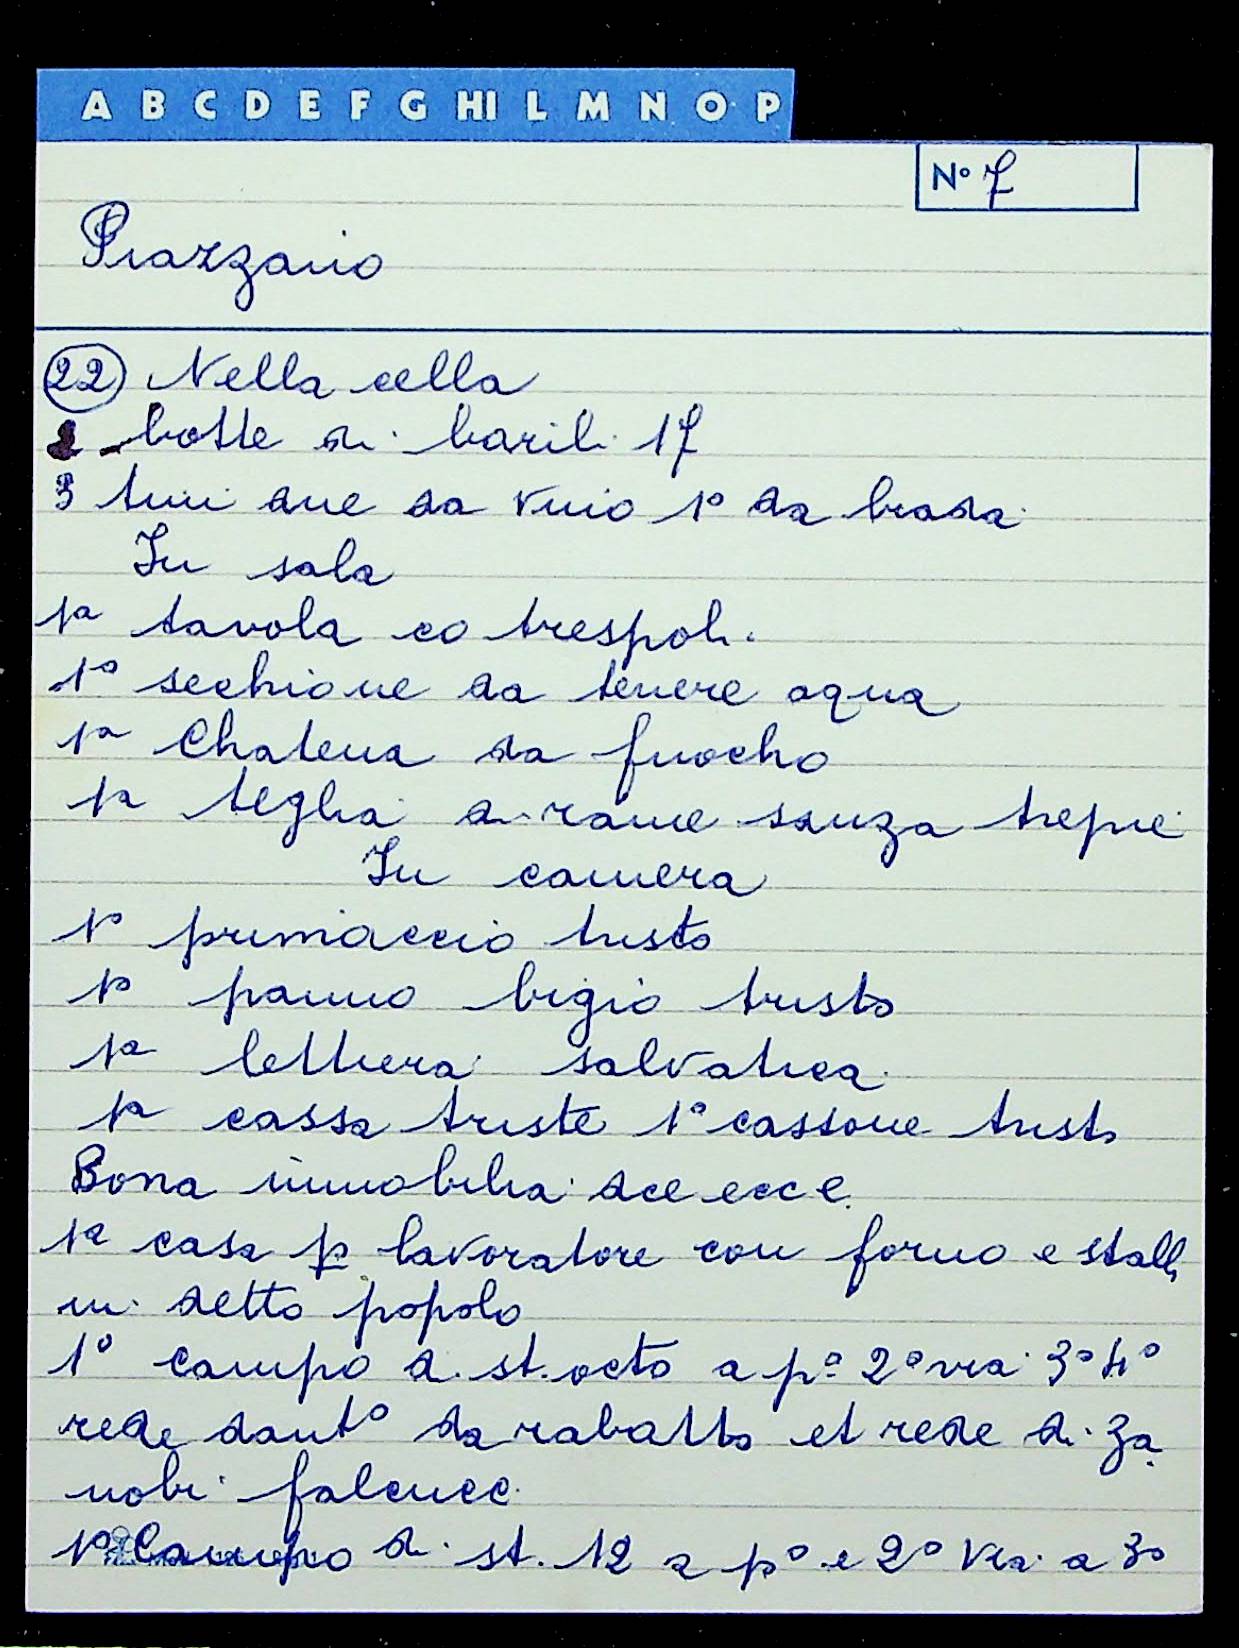 A B C D E F G HI L M N O P
Nº 7
Piazzano
22 Nella cella
2 botte di barili 17
3 tini due da vino 1º da brada
In sala
1ª tavola co trespoli
1º sechione da tenere aqua
1ª Chatena da fuocho
1ª teglia di rame sanza trepie
In camera
1º primaccio tristo
1º panno bigio tristo
1ª lettiera salvatica
1ª cassa triste 1º cassone tristo
Bona immobilia
1ª casa p lavoratore con forno e stalla
in detto popolo
1º campo di st. octo a pº 2º via 3º 4º
rede dantº da rabatto et rede di za
nobi
1º Campo di st. 12 a pº e 2º via a 3º